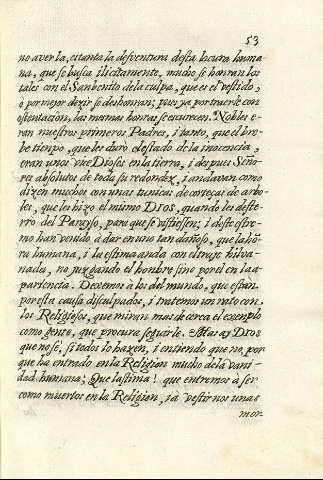 53
no averla, es tanta la desventura desta locura huma-
na, que se busca ilicitamente, mucho se honran los
tales con el Sanbenito de la culpa, que es el vestido,
o por mejor dezir se deshonran; pues ya por traerse con
ostentacion, las mesmas honras se escurecen. Nobles e-
ran nuestros primeros Padres, i tanto, que el bre-
be tiempo, que les duró el estado de la inocencia,
eran unos vice Dioses en la tierra, i despues Seño-
res absolutos de toda su redondez, i andavan como
dizen muchos con unas tunicas de corteças de arbo-
les, que les hizo el mismo DIOS, quando les deste-
rro del Parayso, para que se vistiessen; i deste estre-
mo han venido a dar en uno tan dañoso, que la hõ-
ra humana, i la estima anda con el traje hilva-
nada, no juzgando el hombre sino por el en la a-
pariencia. Dexemos a los del mundo, que estan
por esta causa disculpados, i tratemos un rato con
los Religiosos, que miran mas de cerca el exemplo
como gente, que procura seguirle. Mas ay DIOS
que no sé, si todos lo hazen, i entiendo que no, por
que ha entrado en la Religion mucho de la vani-
dad humana; Que lastima! que entremos a ser
como muertos en la Religion, i a vestirnos unas
mor